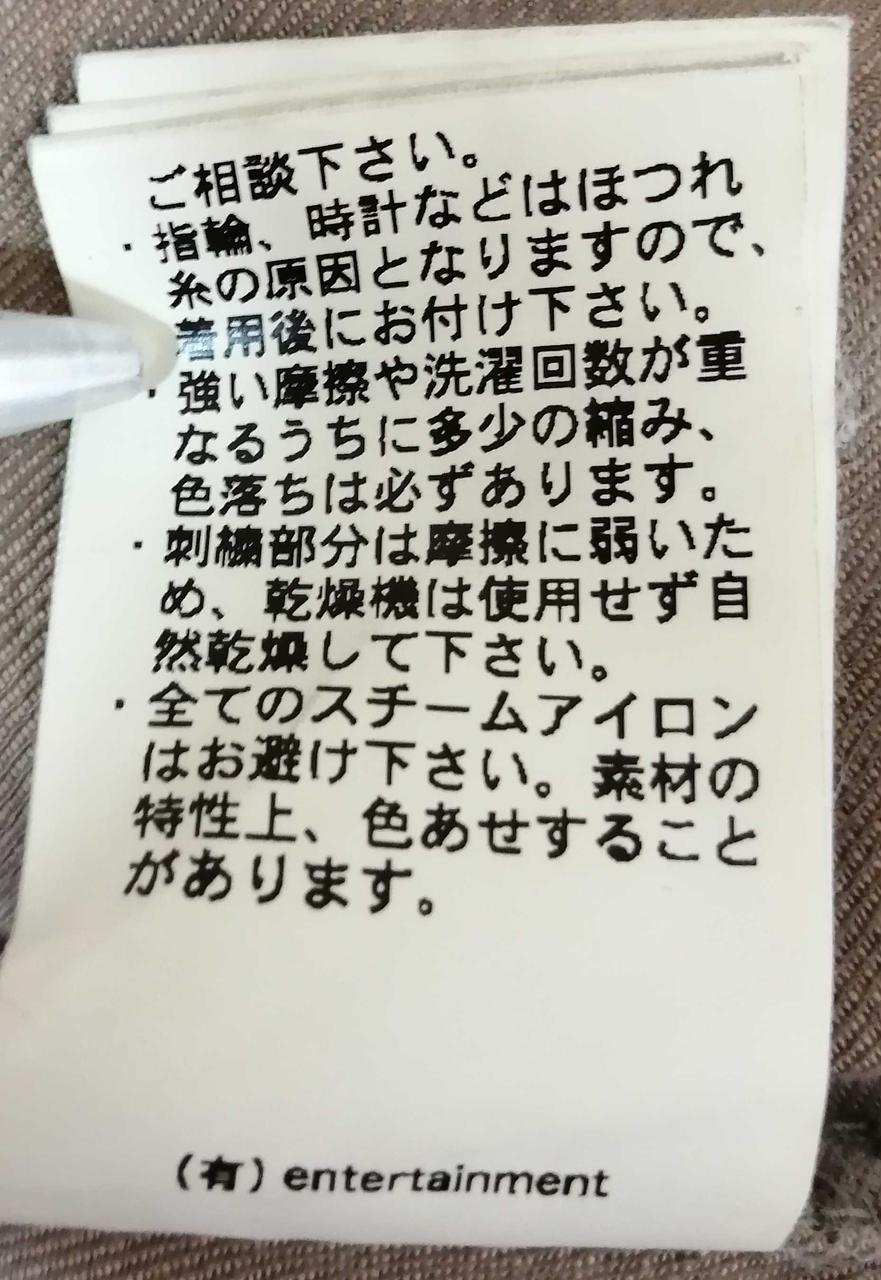 ご相談下さい。
・指輪、時計などはほつれ
糸の原因となりますので、
着用後にお付け下さい。
・強い摩擦や洗濯回数が重
なるうちに多少の縮み、
色落ちは必ずあります。
・刺繍部分は摩擦に弱いた
め、乾燥機は使用せず自
然乾燥して下さい。
・全てのスチームアイロン
はお避け下さい。素材の
特性上、色あせすること
があります。
(有) entertainment